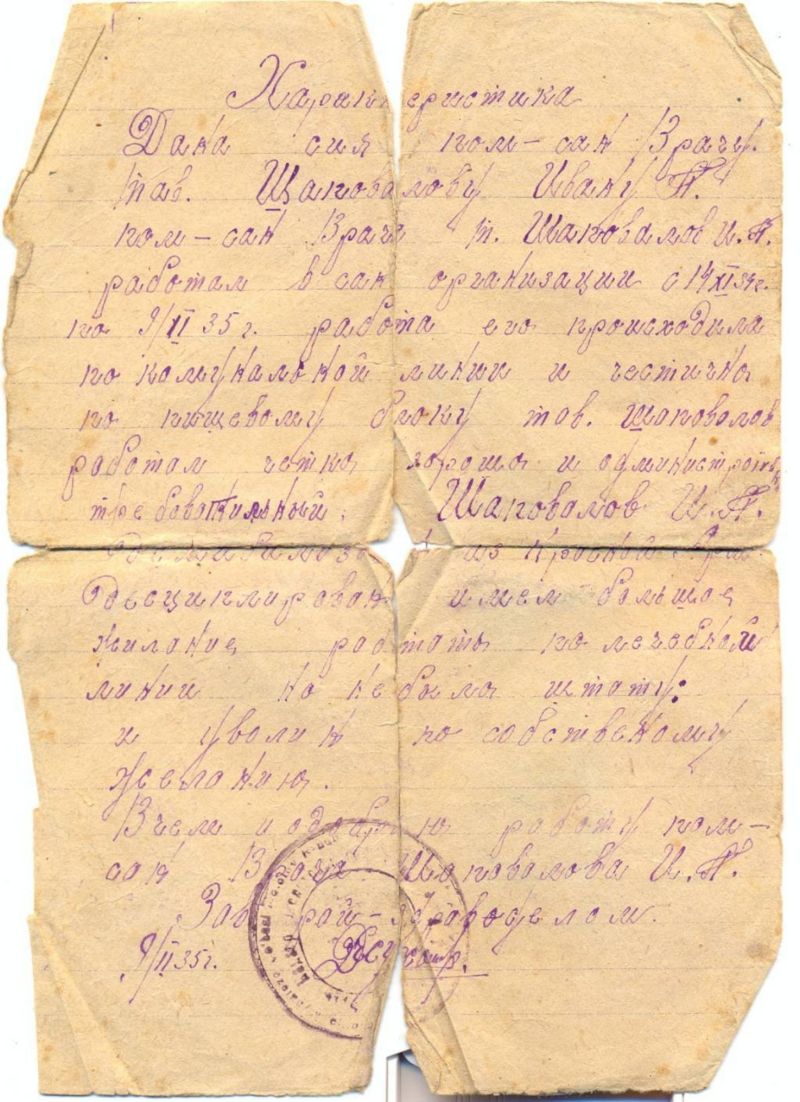 Характеристика
Дана сия пом-сан Врачу.
тав. Шаповалову Ивану П.
пом-сан Врач т. Шаповалов И.П.
работал в сан организации с 14 XI 34г.
по 9/II 35 г. работа его происходила
по комунальной линии и честично
по пищевому блоку тав. Шаповалов
работал четка хорошо и
требовательный. Шаповалов И.П.
из Красной
Десциплирован имел большое
жилание работать по лечебной
линии но не была штату:
и уволин по собственому
желанию.
В чем и одобряю работу пом-
сан Врача Шаповалова И.П.
Зав край-здраводелом.
9/II 35г.